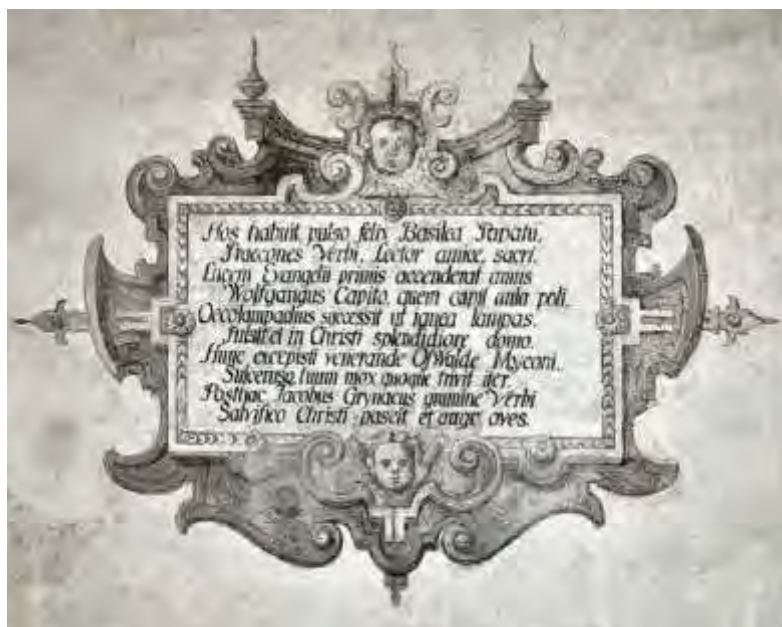 Hos habuit pulso felix Basilea Papatu,
Praecones Verbi, Lector amice, sacri.
Lucem Evangelii primis accenderat annis
Wolfgangus Capito, quem capit aula poli.
Oecolampadius successit ut ignea lampas.
Fulsit et in Christi splendidiore domo.
Hunc excepisti venerande Osvalde Myconi,
tuum mox quoque trivit iter.
Posthac Jacobus Grynaeus gramine Verbi
Salvifico Christi pascit et auget oves.